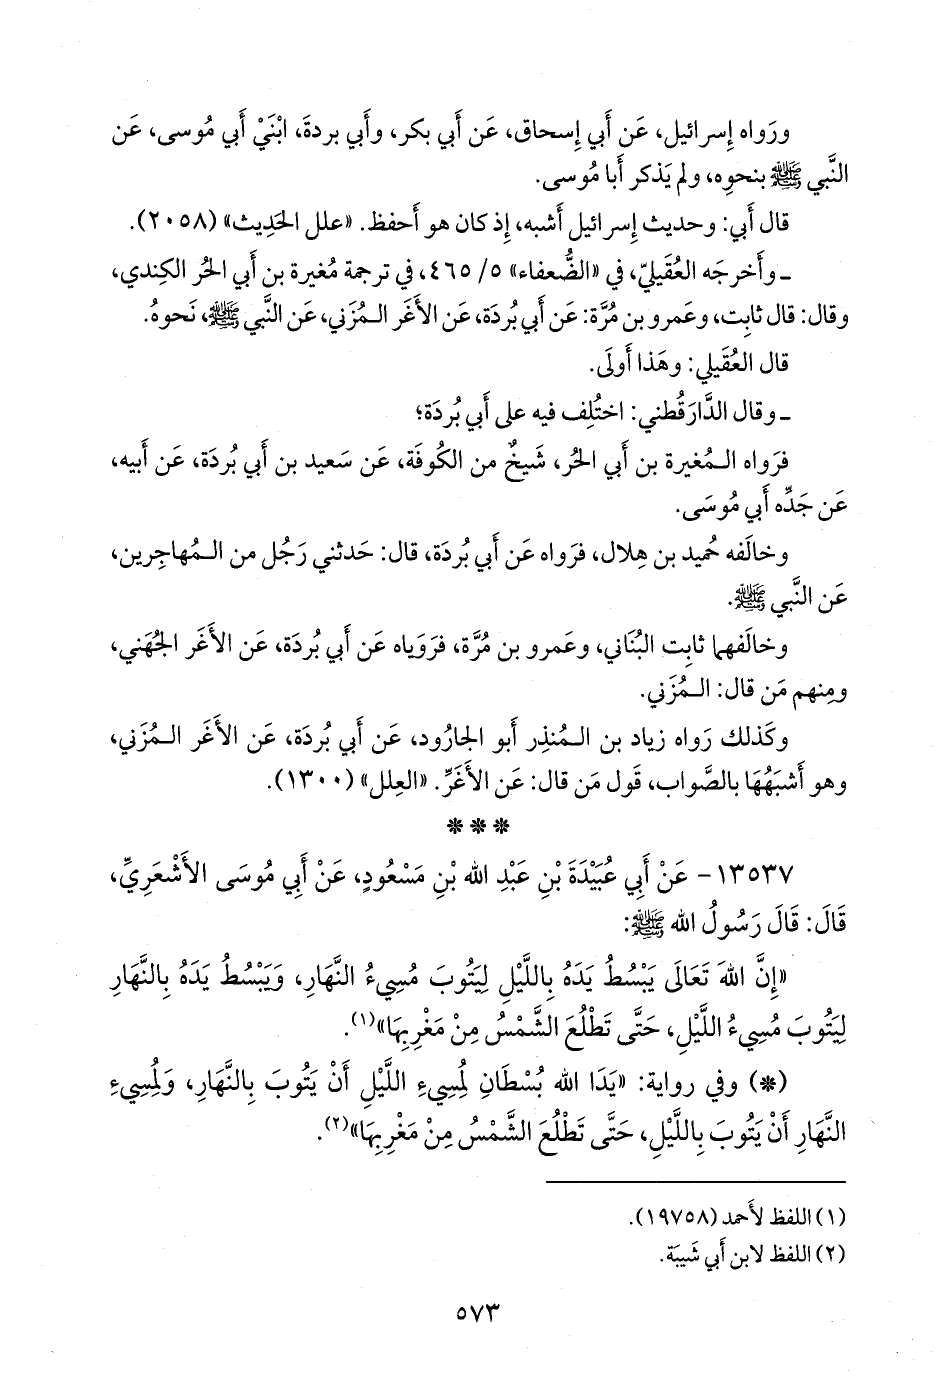 ورَواه إِسرائيل، عَن أَبي إِسحاق، عَن أَبي بكر، وأَبي بردةَ، ابْنَيْ أَبي مُوسى، عَن
النَّبي ﷺ بنحوِه، ولم يَذكر أَبا مُوسى.
قال أَبي: وحديث إِسرائيل أَشبه، إِذ كان هو أَحفظ. «علل الحَدِيث» (٢٠٥٨).
ـ وأَخرجَه العُقيليّ، في «الضُّعفاء» ٥/ ٤٦٥، في ترجمة مُغيرة بن أَبي الحُر الكِندي،
وقال: قال ثابِت، وعَمرو بن مُرَّة: عَن أَبي بُردَة، عَن الأَغَر الـمُزَني، عَن النَّبي ﷺ، نَحوهُ.
قال العُقَيلي: وهَذا أَولَى.
ـ وقال الدَّارَقُطني: اختُلِف فيه على أَبي بُردَة؛
فرَواه الـمُغيرة بن أَبي الحُر، شَيخٌ من الكُوفَة، عَن سَعيد بن أَبي بُردَة، عَن أَبيه،
عَن جَدِّه أَبي مُوسَى.
وخالَفه حُميد بن هِلال، فرَواه عَن أَبي بُردَة، قال: حَدثني رَجُل من الـمُهاجِرين،
عَن النَّبي ﷺ.
وخالَفهما ثابِت البُنَاني، وعَمرو بن مُرَّة، فرَوَياه عَن أَبي بُردَة، عَن الأَغَر الجُهَني،
ومِنهم مَن قال: الـمُزَني.
وكَذلك رَواه زياد بن الـمُنذِر أَبو الجارُود، عَن أَبي بُردَة، عَن الأَغَر الـمُزَني،
وهو أَشبَهُهَا بالصَّواب، قَول مَن قال: عَن الأَغَرِّ. «العِلل» (١٣٠٠).
* * *
١٣٥٣٧- عَنْ أَبِي عُبَيْدَةَ بْنِ عَبْدِ الله بْنِ مَسْعُودٍ، عَنْ أَبِي مُوسَى الأَشْعَرِيِّ،
قَالَ: قَالَ رَسُولُ الله ﷺ:
«إِنَّ اللهَ تَعَالَى يَبْسُطُ يَدَهُ بِاللَّيْلِ لِيَتُوبَ مُسِيءُ النَّهَارِ، وَيَبْسُطُ يَدَهُ بِالنَّهَارِ
لِيَتُوبَ مُسِيءُ اللَّيْلِ، حَتَّى تَطْلُعَ الشَّمْسُ مِنْ مَغْرِبِهَا»(١).
(*) وفي رواية: «يَدَا الله بُسْطَانِ لِمُسِيءِ اللَّيْلِ أَنْ يَتُوبَ بِالنَّهَارِ، وَلِمُسِيءِ
النَّهَارِ أَنْ يَتُوبَ بِاللَّيْلِ، حَتَّى تَطْلُعَ الشَّمْسُ مِنْ مَغْرِبِهَا»(٢).
(١) اللفظ لأَحمد (١٩٧٥٨).
(٢) اللفظ لابن أَبي شَيبَة.
٥٧٣